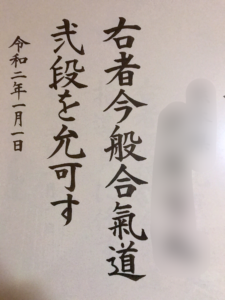 右者今般合氣道
弐段を允可す
令和二年一月一日